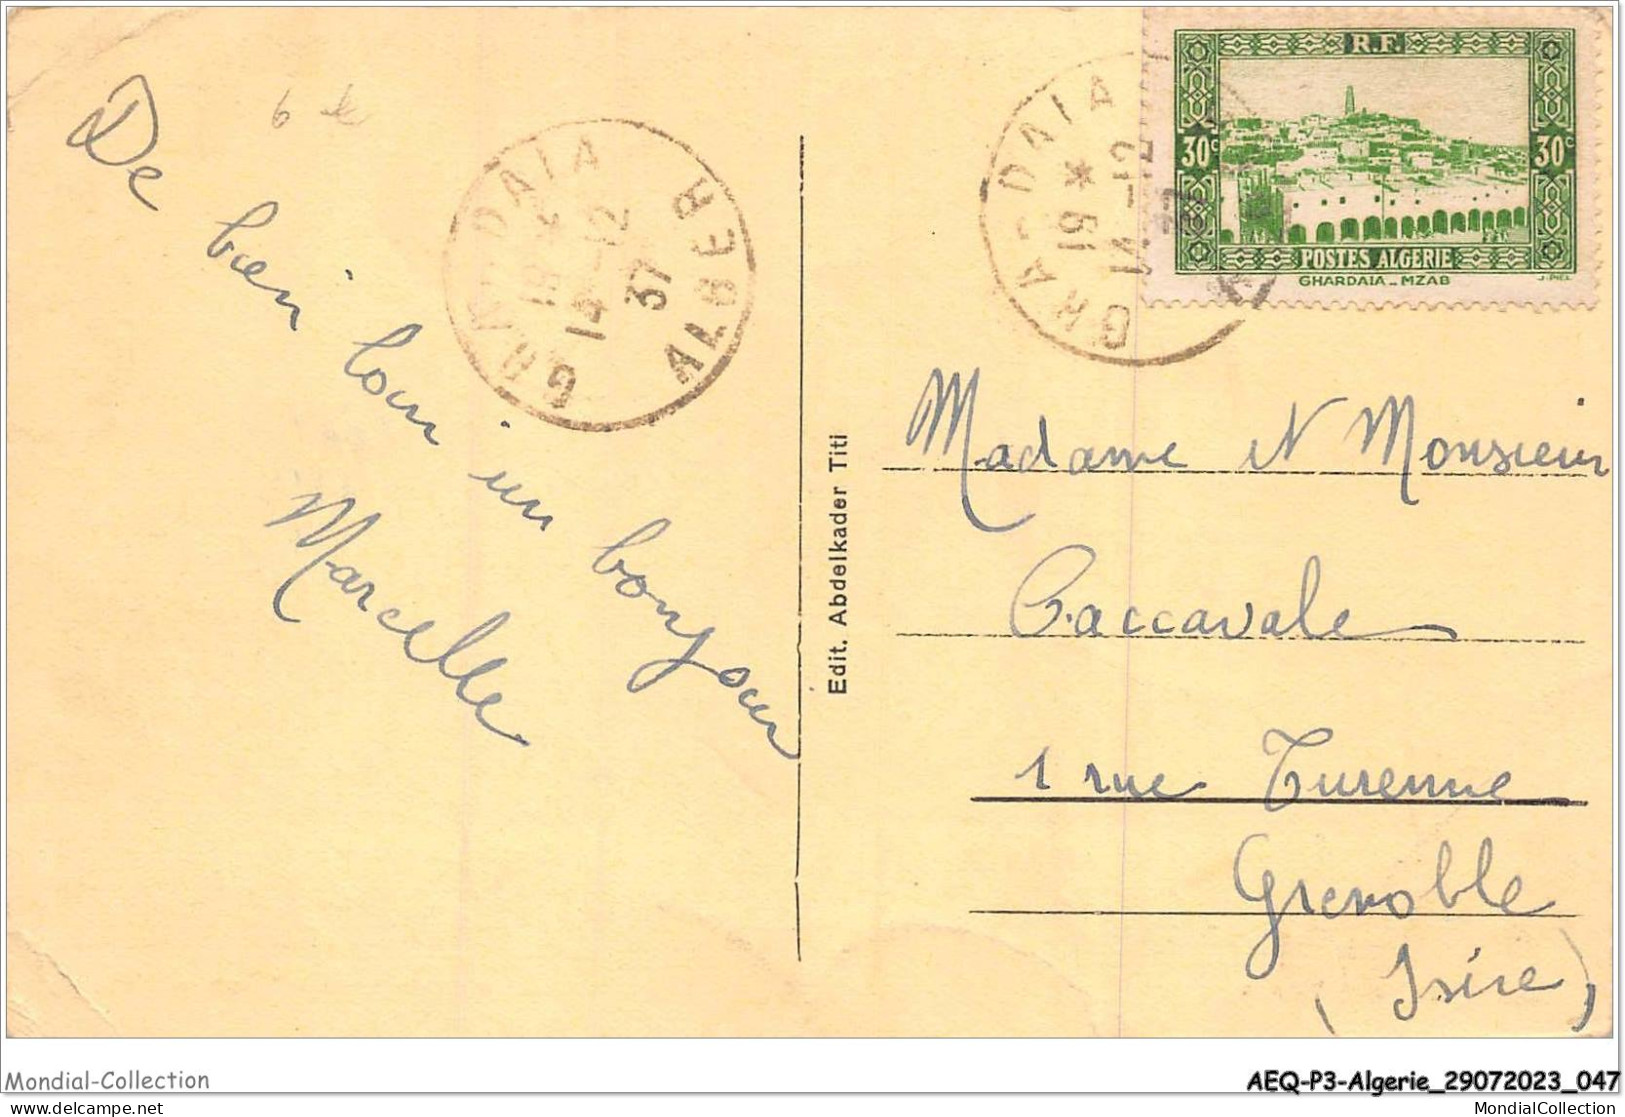 6 €
De
bien loin un bonjour
Marcelle
GHARDAIA
19 *
14-12
37
ALGER
Edit. Abdelkader Titi
GHARDAIA
19 *
14-12
R.F.
30c 30c
POSTES ALGERIE
GHARDAIA_MZAB
Madame et Monsieur
Caccavale
1 rue Turenne
Grenoble
(Isère)
Mondial-Collection
AEQ-P3-Algerie_29072023_047
delcampe.net
MondialCollection